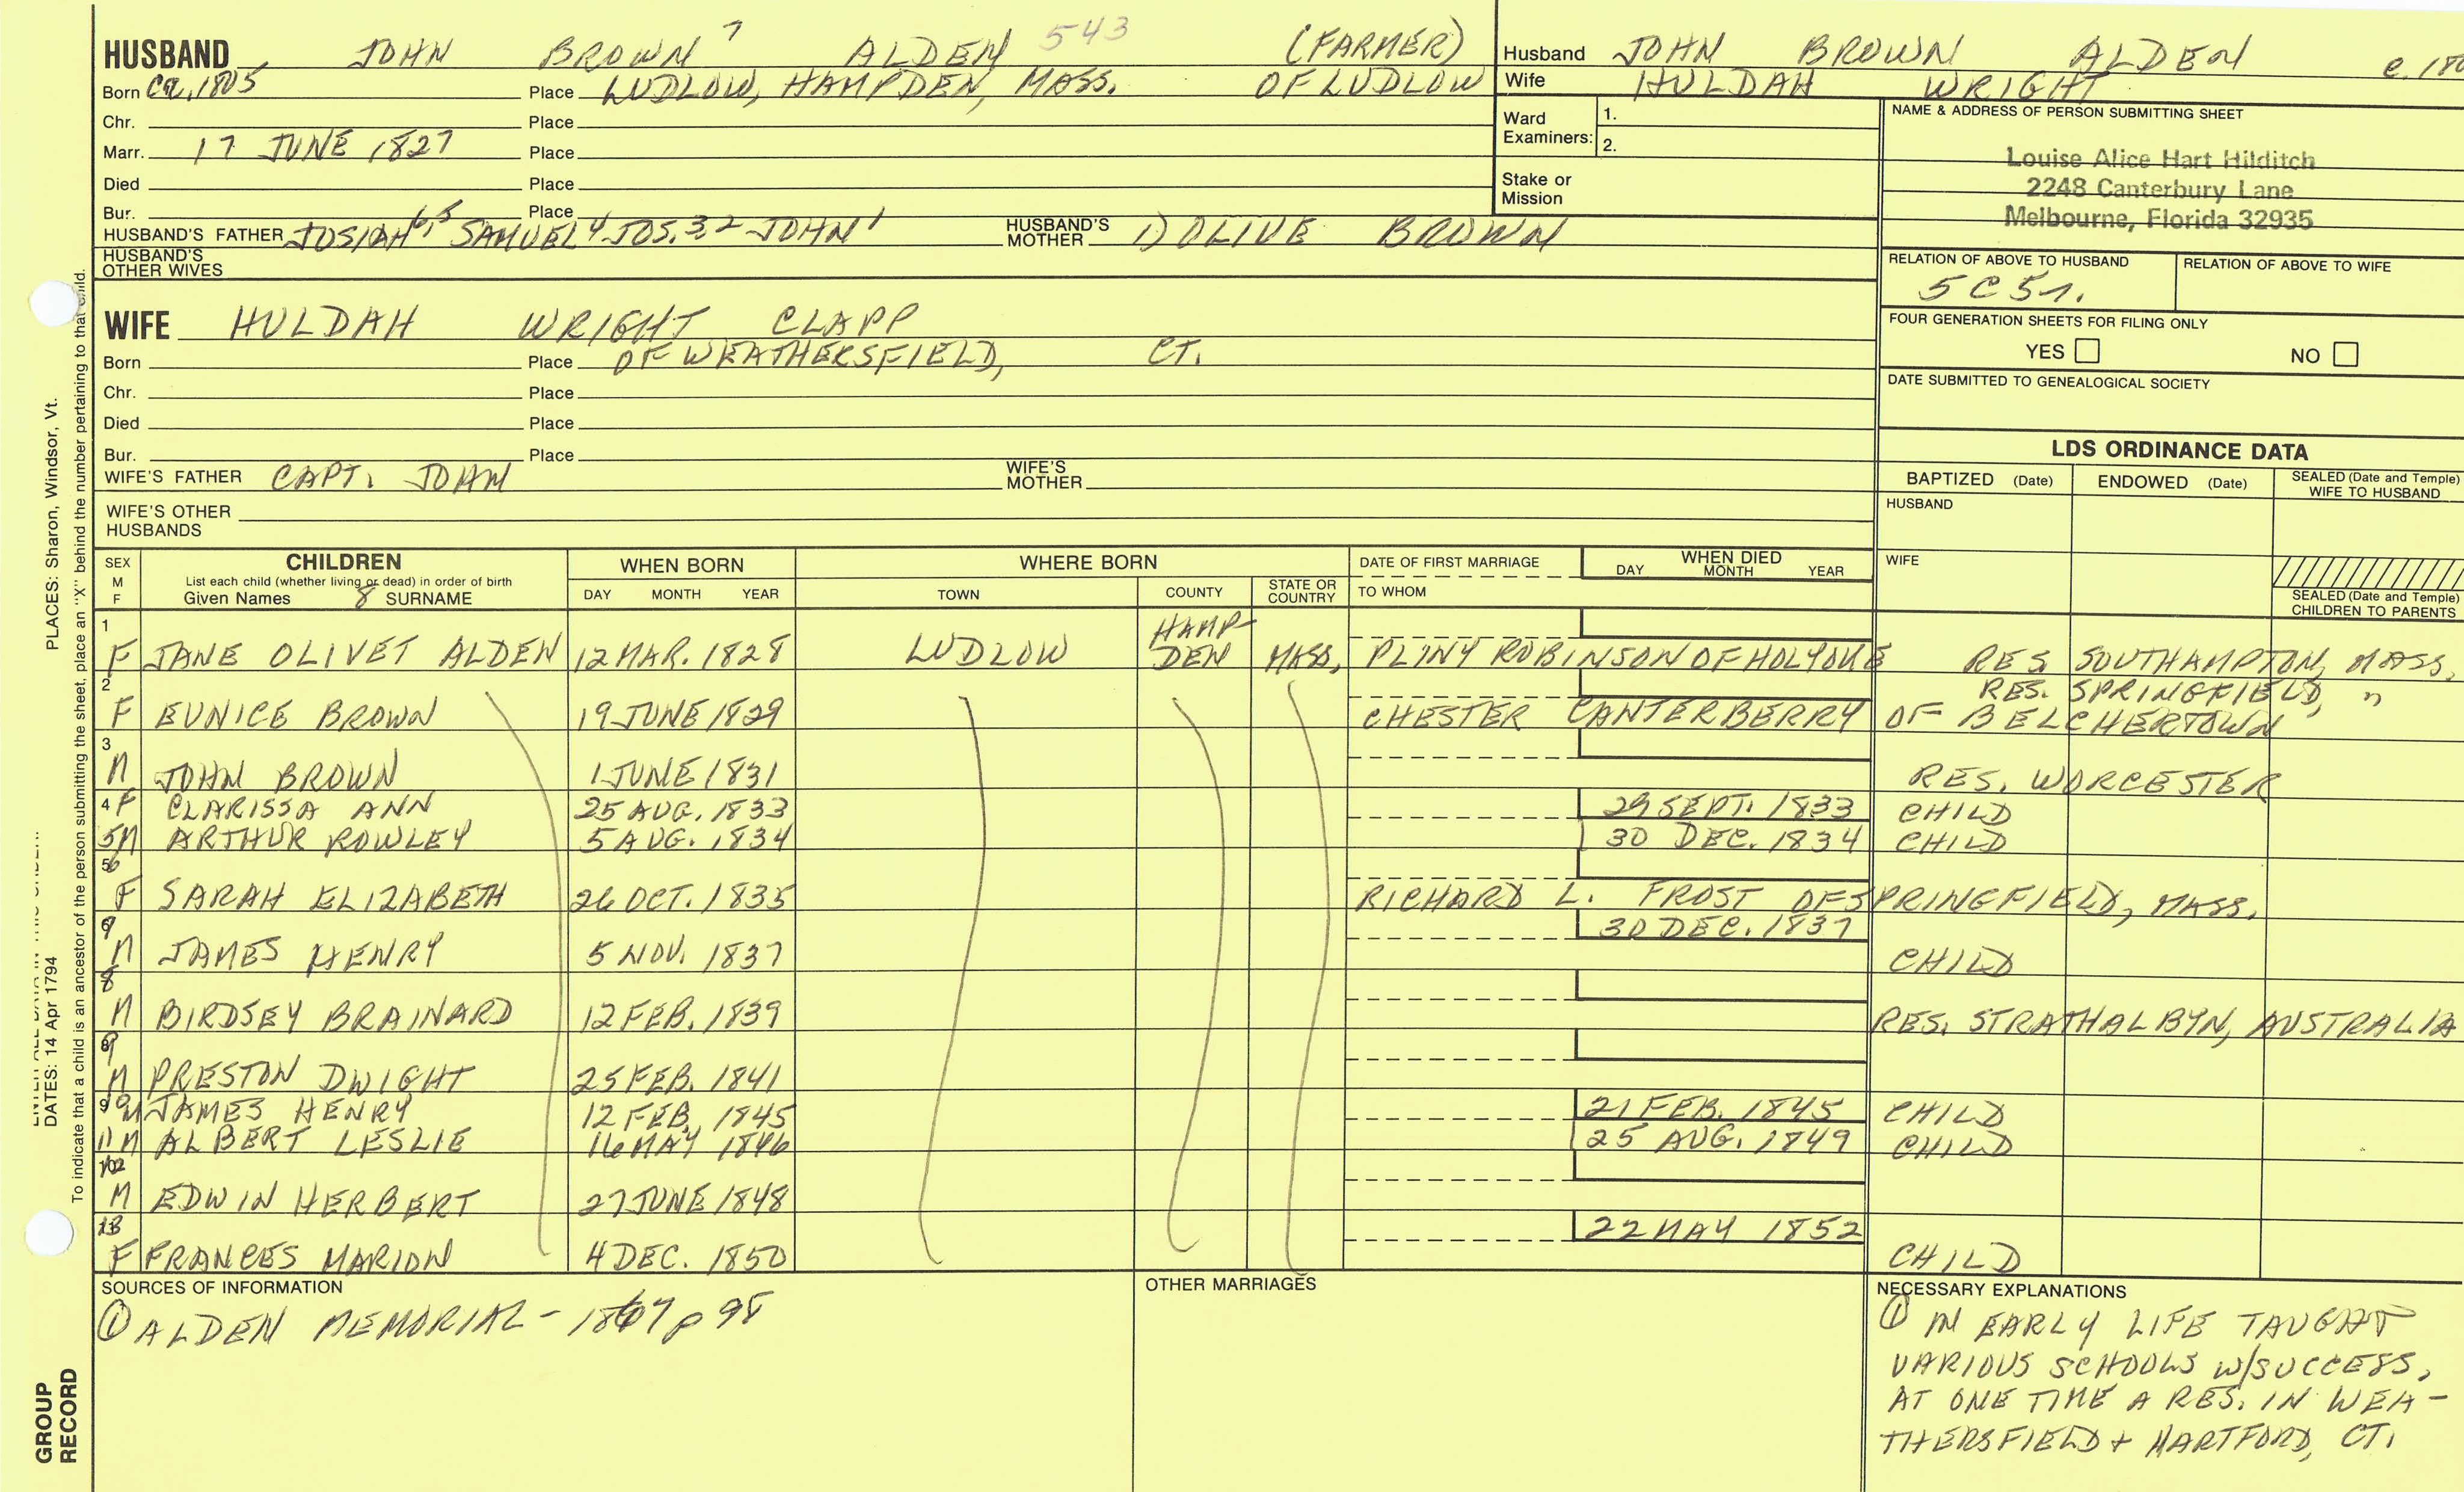 HUSBAND JOHN BROWN 7 ALDEN 543 (FARMER)
Born ca. 1805 Place LUDLOW, HAMPDEN, MASS. OF LUDLOW
Chr. Place
Marr. 17 JUNE 1827 Place
Died Place
Bur. Place
HUSBAND'S FATHER JOSIAH 6,5 SAMUEL 4 JOS. 3,2 JOHN 1 HUSBAND'S MOTHER 1) OLIVE BROWN
HUSBAND'S OTHER WIVES
Husband JOHN BROWN ALDEN
Wife HULDAH WRIGHT
Ward Examiners: 1.
2.
Stake or Mission
NAME & ADDRESS OF PERSON SUBMITTING SHEET
Louise Alice Hart Hilditch
2248 Canterbury Lane
Melbourne, Florida 32935
RELATION OF ABOVE TO HUSBAND RELATION OF ABOVE TO WIFE
5C5r.
FOUR GENERATION SHEETS FOR FILING ONLY
YES NO
DATE SUBMITTED TO GENEALOGICAL SOCIETY
WIFE HULDAH WRIGHT CLAPP
Born Place OF WEATHERSFIELD, CT.
Chr. Place
Died Place
Bur. Place
WIFE'S FATHER CAPT. JOHN WIFE'S MOTHER
WIFE'S OTHER HUSBANDS
LDS ORDINANCE DATA
BAPTIZED (Date) ENDOWED (Date) SEALED (Date and Temple) WIFE TO HUSBAND
HUSBAND
WIFE
SEALED (Date and Temple) CHILDREN TO PARENTS
SEX M F CHILDREN WHEN BORN WHERE BORN DATE OF FIRST MARRIAGE WHEN DIED
List each child (whether living or dead) in order of birth DAY MONTH YEAR
Given Names 8 SURNAME DAY MONTH YEAR TOWN COUNTY STATE OR COUNTRY TO WHOM
1 F JANE OLIVET ALDEN 12 MAR. 1828 LUDLOW HAMP-DEN MASS. PLINY ROBINSON OF HOLYOKE RES. SOUTHAMPTON, MASS.
RES. SPRINGFIELD, "
2 F EUNICE BROWN 19 JUNE 1829 CHESTER CANTERBERRY OF BELCHERTOWN
3 M JOHN BROWN 1 JUNE 1831 RES. WORCESTER
4 F CLARISSA ANN 25 AUG. 1833 29 SEPT. 1833 CHILD
5 M ARTHUR ROWLEY 5 AUG. 1834 30 DEC. 1834 CHILD
6 F SARAH ELIZABETH 26 OCT. 1835 RICHARD L. FROST OF SPRINGFIELD, MASS.
7 M JAMES HENRY 5 NOV. 1837 30 DEC. 1837 CHILD
8 M BIRDSEY BRAINARD 12 FEB. 1839 RES. STRATHALBYN, AUSTRALIA
9 M PRESTON DWIGHT 25 FEB. 1841
10 M JAMES HENRY 12 FEB. 1845 21 FEB. 1845 CHILD
11 M ALBERT LESLIE 16 MAY 1846 25 AUG. 1849 CHILD
12 M EDWIN HERBERT 27 JUNE 1848
13 F FRANCES MARION 4 DEC. 1850 22 MAY 1852 CHILD
SOURCES OF INFORMATION
① ALDEN MEMORIAL - 1867 p 98
OTHER MARRIAGES
NECESSARY EXPLANATIONS
① IN EARLY LIFE TAUGHT
VARIOUS SCHOOLS W/SUCCESS,
AT ONE TIME A RES. IN WEA-
THERSFIELD + HARTFORD, CT.
PLACES: Sharon, Windsor, Vt.
DATES: 14 Apr 1794
To indicate that a child is an ancestor of the person submitting the sheet, place an "X" behind the number pertaining to that child.
GROUP
RECORD